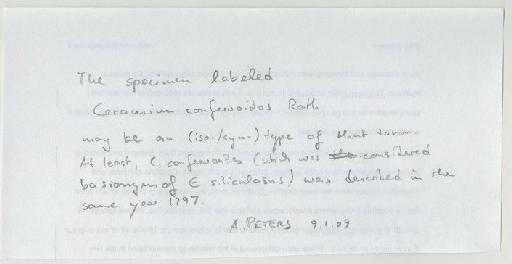 The specimen labeled
Ceramium confervoides Roth
may be an (iso-/syn-)type of that taxon.
At least, C. confervoides (which was considered
basionym of E. siliculosus) was described in the
same year 1797.
A. PETERS 9.1.09